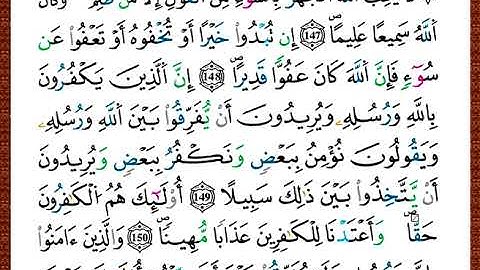 ٱللَّهُ سَمِيعًا عَلِيمًا ۝١٤٧ إِن تُبْدُوا۟ خَيْرًا أَوْ تُخْفُوهُ أَوْ تَعْفُوا۟ عَن
سُوٓءٍ فَإِنَّ ٱللَّهَ كَانَ عَفُوًّا قَدِيرًا ۝١٤٨ إِنَّ ٱلَّذِينَ يَكْفُرُونَ
بِٱللَّهِ وَرُسُلِهِۦ وَيُرِيدُونَ أَن يُفَرِّقُوا۟ بَيْنَ ٱللَّهِ وَرُسُلِهِۦ
وَيَقُولُونَ نُؤْمِنُ بِبَعْضٍ وَنَكْفُرُ بِبَعْضٍ وَيُرِيدُونَ
أَن يَتَّخِذُوا۟ بَيْنَ ذَٰلِكَ سَبِيلًا ۝١٤٩ أُو۟لَٰٓئِكَ هُمُ ٱلْكَٰفِرُونَ
حَقًّا وَأَعْتَدْنَا لِلْكَٰفِرِينَ عَذَابًا مُّهِينًا ۝١٥٠ وَٱلَّذِينَ ءَامَنُوا۟